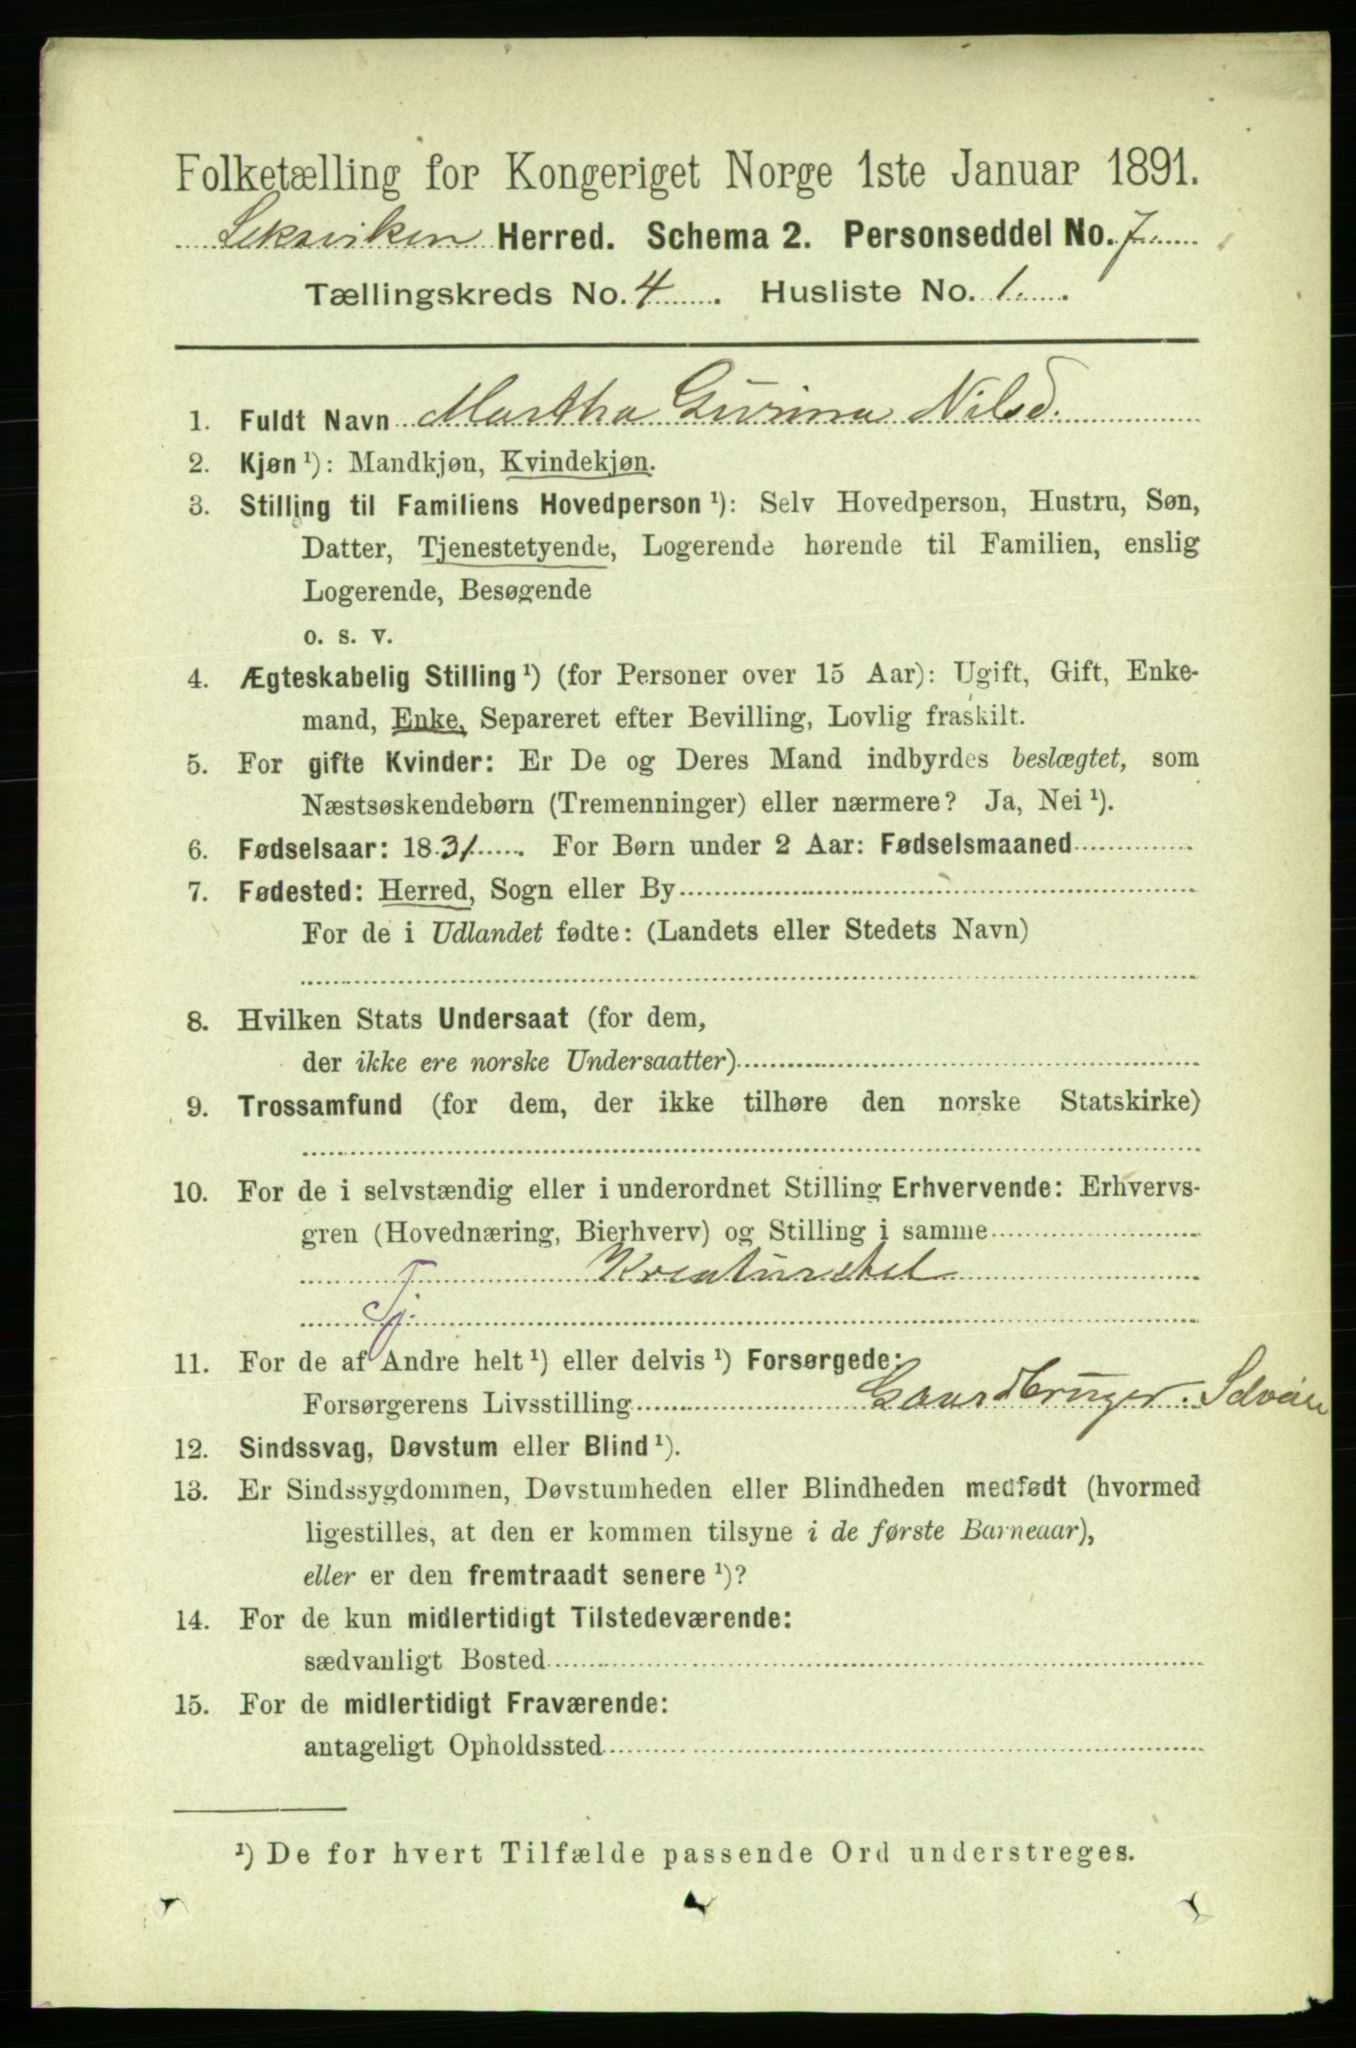 Folketælling for Kongeriget Norge 1ste Januar 1891.
Leksviken Herred. Schema 2. Personseddel No. 7
Tællingskreds No. 4. Husliste No. 1.
1. Fuldt Navn Martha Gurina Nilsd.
2. Kjøn ¹): Mandkjøn, Kvindekjøn.
3. Stilling til Familiens Hovedperson ¹): Selv Hovedperson, Hustru, Søn,
Datter, Tjenestetyende, Logerende hørende til Familien, enslig
Logerende, Besøgende
o. s. v.
4. Ægteskabelig Stilling ¹) (for Personer over 15 Aar): Ugift, Gift, Enke-
mand, Enke, Separeret efter Bevilling, Lovlig fraskilt.
5. For gifte Kvinder: Er De og Deres Mand indbyrdes beslægtet, som
Næstsøskendebørn (Tremenninger) eller nærmere? Ja, Nei ¹).
6. Fødselsaar: 1831. For Børn under 2 Aar: Fødselsmaaned
7. Fødested: Herred, Sogn eller By
For de i Udlandet fødte: (Landets eller Stedets Navn)
8. Hvilken Stats Undersaat (for dem,
der ikke ere norske Undersaatter)
9. Trossamfund (for dem, der ikke tilhøre den norske Statskirke)
10. For de i selvstændig eller i underordnet Stilling Erhvervende: Erhvervs-
gren (Hovednæring, Bierhverv) og Stilling i samme
Kreaturstel
Tj.
11. For de af Andre helt ¹) eller delvis ¹) Forsørgede:
Forsørgerens Livsstilling Gaardbruger. Selveier
12. Sindssvag, Døvstum eller Blind ¹).
13. Er Sindssygdommen, Døvstumheden eller Blindheden medfødt (hvormed
ligestilles, at den er kommen tilsyne i de første Barneaar),
eller er den fremtraadt senere ¹)?
14. For de kun midlertidigt Tilstedeværende:
sædvanligt Bosted
15. For de midlertidigt Fraværende:
antageligt Opholdssted
¹) De for hvert Tilfælde passende Ord understreges.